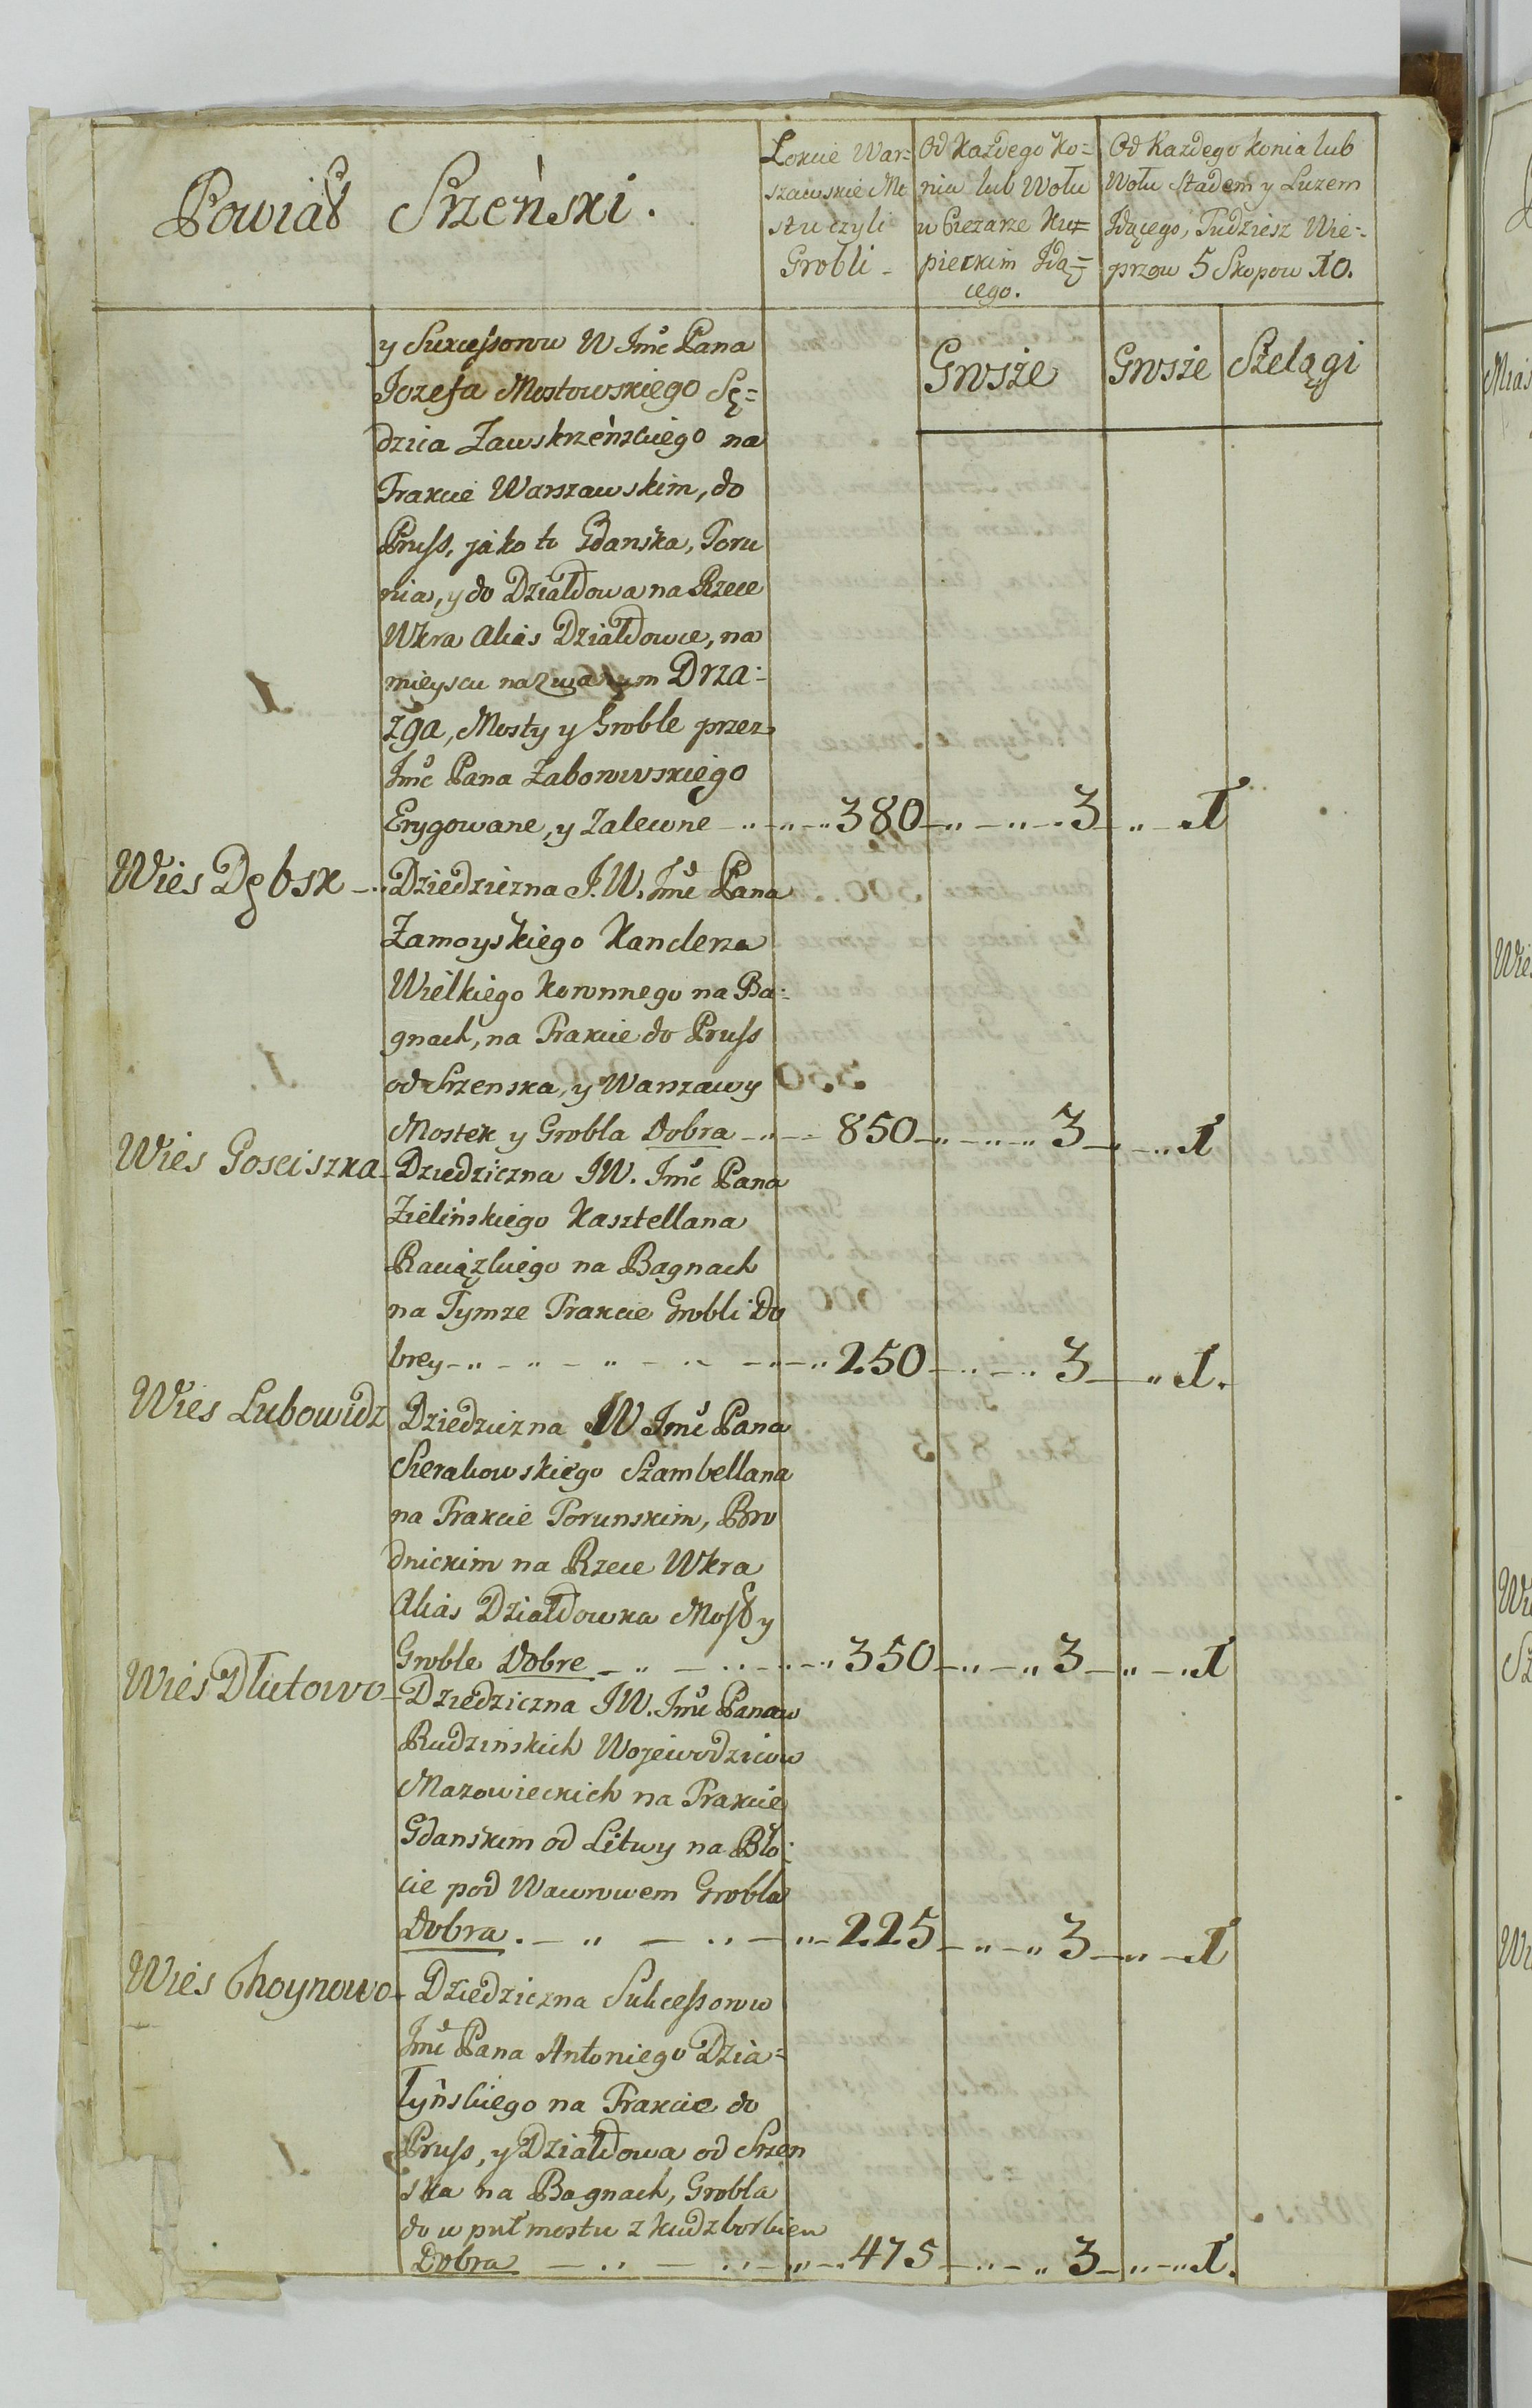 Powiat Srzeński.
Łokcie War=
szawskie Mo
stu czyli
Grobli -
Od Każdego Ko=
nia lub Wołu
w Ciezarze Ku=
pieckim Idą=
cego.
Od Każdego konia lub
Wołu Stadem y Luzem
Idącego, Tudziesz Wie=
przow 5 Skopow 10.
Grosze
Grosze
Szelągi
y Sukcessorow W Jmć Pana
Jozefa Mostowskiego Sę=
dzica Zawskrzeńskiego na
Trakcie Warszawskim, do
Pruss, jako to Gdanska, Toru
nia, y do Działdowa na Rzece
Wkra alias Działdowce, na
mieyscu nazwanym Drza=
zga, Mosty y Groble przez
Jmć Pana Zaborowskiego
Erygowane, y Zalewne 380 3 1
Wieś Dębsk Dziedziczna J.W. Jmć Pana
Zamoyskiego Kanclerza
Wielkiego Koronnego na Ba=
gnach, na Trakcie do Pruss
od Srzenska, y Warszawy
Mostek y Grobla Dobra 850 3 1
Wieś Gosciszka Dziedziczna JW. Jmć Pana
Zielińskiego Kasztellana
Raciązkiego na Bagnach
na Tymze Trakcie Grobli Do
brey 250 3 1.
Wieś Lubowidz Dziedziczna JW Jmć Pana
Sierakowskiego Szambellana
na Trakcie Torunskim, Bro
dnickim na Rzece Wkra
alias Działdowka Most y
Groble Dobre 350 3 1
Wieś Dłutowo Dziedziczna JW. Jmć Panow
Rudzinskich Wojewodzicow
Mazowieckich na Trakcie
Gdanskim od Litwy na Bło=
cie pod Wawrowem Grobla
Dobra. 225 3 1
Wieś Choynowo Dziedziczna Sukcessorow
Jmć Pana Antoniego Dzia=
łyńskiego na Trakcie do
Pruss, y Działdowa od Srzen
ska na Bagnach, Grobla
do w puł mostu z Kudzborkiem
Dobra 475 3 1.